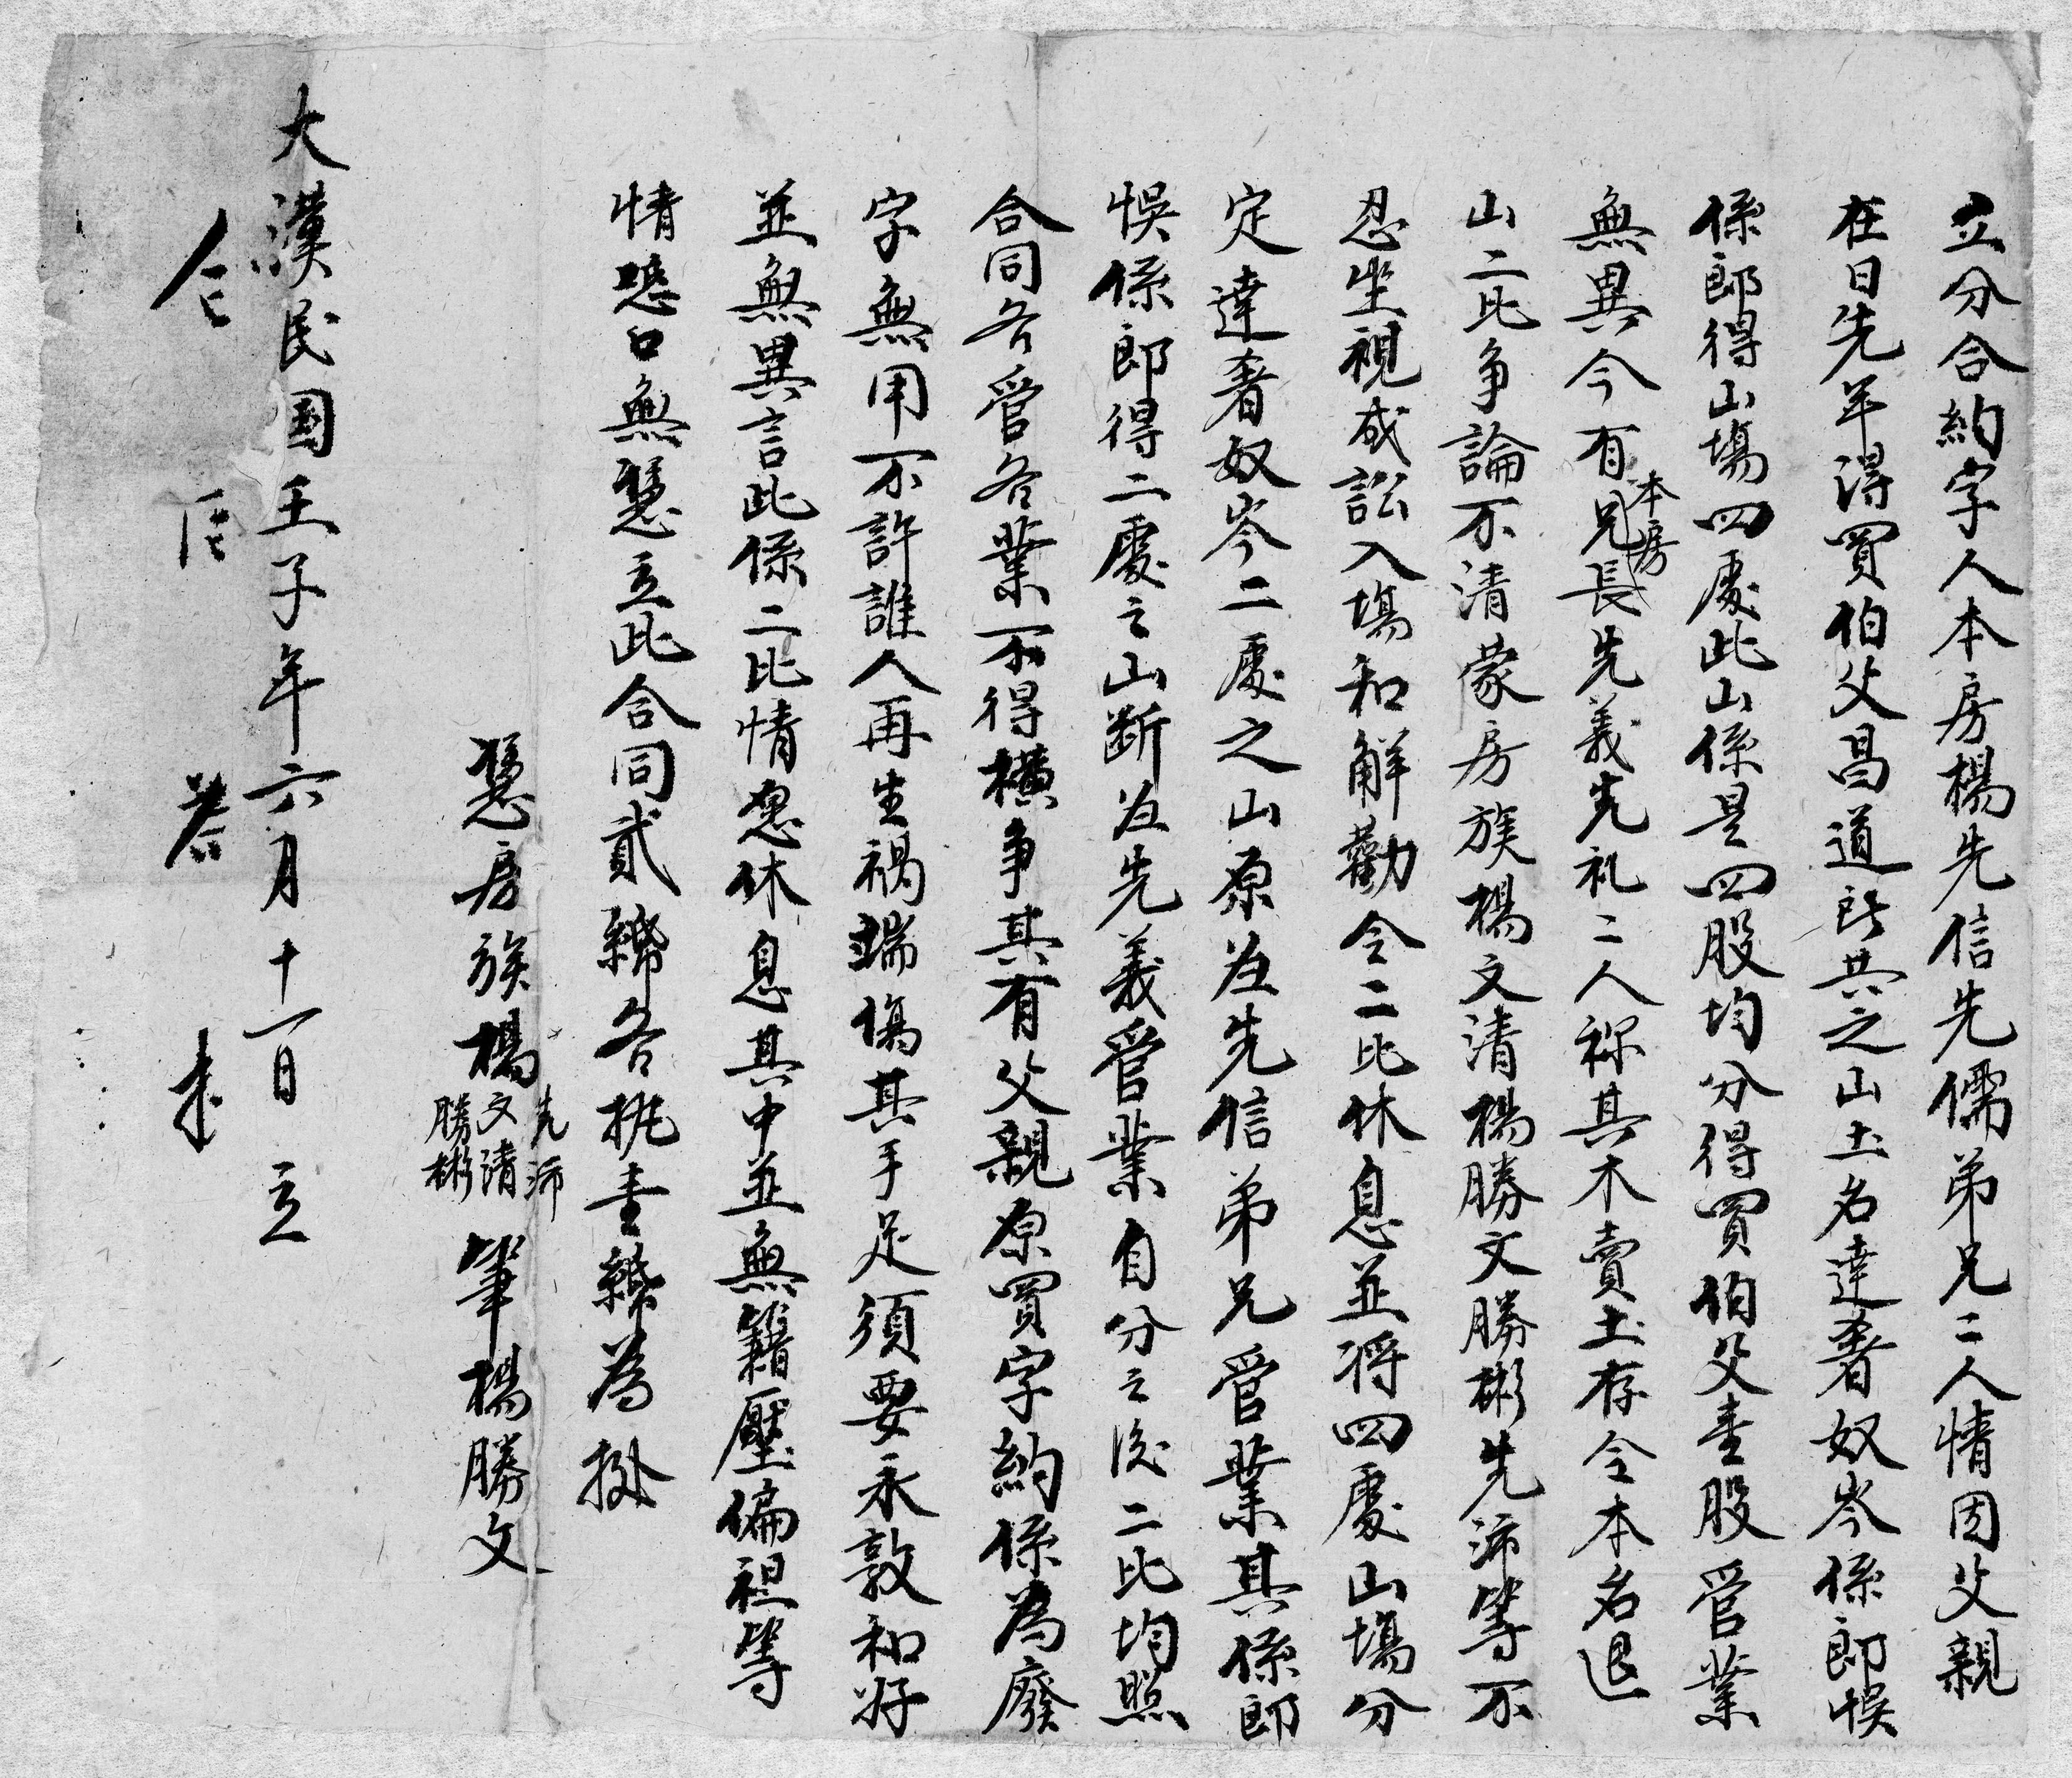 立分合約字人本房楊先信先儒弟兄二人情因父親
在日先年得買伯父昌道所共之山土名達奢奴岑係郎悞
係郎得山塲四處此山係是四股均分得買伯父壹股管業
無異今有兄長先義先礼二人称其木賣土存令本名退
本房
山二比争論不清蒙房族楊文清楊勝文勝彬先沛等不
忍坐視成訟入塲和觧勸令二比休息並將四處山塲分
定達奢奴岑二處之山原为先信弟兄管業其係郎
悞係郎得二處之山断为先義管業自分之後二比均照
合同各管各業不得橫争其有父親原買字約係為廢
字無用不許誰人再生禍端傷其手足須要永敦和好
並無異言此係二比情愿休息其中並無籍壓偏袒等
情恐口無慿立此合同貳紙各执壹紙為㨿
慿房族楊
先沛
文清
勝彬
筆楊勝文
大漢民国壬子年六月十一日立